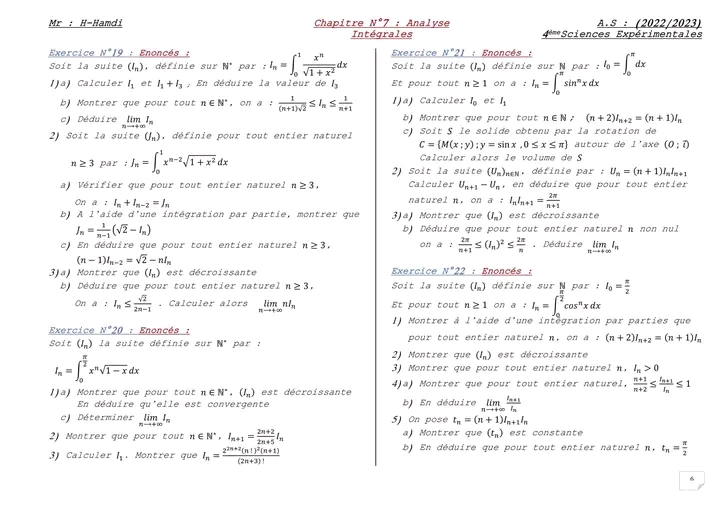 Mr : H-Hamdi
Chapitre N°7 : Analyse
Intégrales
A.S : (2022/2023)
4èmeSciences Expérimentales
Exercice N°19 : Enoncés :
Soit la suite (Iₙ), définie sur ℕ* par : Iₙ = ∫₀¹ xⁿ/√(1 + x²) dx
1)a) Calculer I₁ et I₁ + I₃ ; En déduire la valeur de I₃
b) Montrer que pour tout n ∈ ℕ*, on a : 1/((n+1)√2) ≤ Iₙ ≤ 1/(n+1)
c) Déduire lim n→+∞ Iₙ
2) Soit la suite (Jₙ), définie pour tout entier naturel
n ≥ 3 par : Jₙ = ∫₀¹ xⁿ⁻²√(1 + x²) dx
a) Vérifier que pour tout entier naturel n ≥ 3,
On a : Iₙ + Iₙ₋₂ = Jₙ
b) A l'aide d'une intégration par partie, montrer que
Jₙ = 1/(n−1) (√2 − Iₙ)
c) En déduire que pour tout entier naturel n ≥ 3,
(n − 1)Iₙ₋₂ = √2 − nIₙ
3)a) Montrer que (Iₙ) est décroissante
b) Déduire que pour tout entier naturel n ≥ 3,
On a : Iₙ ≤ √2/(2n−1) . Calculer alors lim n→+∞ nIₙ
Exercice N°20 : Enoncés :
Soit (Iₙ) la suite définie sur ℕ* par :
Iₙ = ∫₀^(π/2) xⁿ√(1 − x) dx
1)a) Montrer que pour tout n ∈ ℕ*, (Iₙ) est décroissante
En déduire qu'elle est convergente
c) Déterminer lim n→+∞ Iₙ
2) Montrer que pour tout n ∈ ℕ*, Iₙ₊₁ = (2n+2)/(2n+5) Iₙ
3) Calculer I₁. Montrer que Iₙ = 2²ⁿ⁺²(n!)²(n+1)/(2n+3)!
Exercice N°21 : Enoncés :
Soit la suite (Iₙ) définie sur ℕ par : I₀ = ∫₀^π dx
Et pour tout n ≥ 1 on a : Iₙ = ∫₀^π sinⁿx dx
1)a) Calculer I₀ et I₁
b) Montrer que pour tout n ∈ ℕ ; (n + 2)Iₙ₊₂ = (n + 1)Iₙ
c) Soit S le solide obtenu par la rotation de
C = {M(x ; y) ; y = sin x , 0 ≤ x ≤ π} autour de l'axe (O ; i⃗)
Calculer alors le volume de S
2) Soit la suite (Uₙ)ₙ∈ℕ, définie par : Uₙ = (n + 1)IₙIₙ₊₁
Calculer Uₙ₊₁ − Uₙ, en déduire que pour tout entier
naturel n, on a : IₙIₙ₊₁ = 2π/(n+1)
3)a) Montrer que (Iₙ) est décroissante
b) Déduire que pour tout entier naturel n non nul
on a : 2π/(n+1) ≤ (Iₙ)² ≤ 2π/n . Déduire lim n→+∞ Iₙ
Exercice N°22 : Enoncés :
Soit la suite (Iₙ) définie sur ℕ par : I₀ = π/2
Et pour tout n ≥ 1 on a : Iₙ = ∫₀^(π/2) cosⁿx dx
1) Montrer à l'aide d'une intégration par parties que
pour tout entier naturel n, on a : (n + 2)Iₙ₊₂ = (n + 1)Iₙ
2) Montrer que (Iₙ) est décroissante
3) Montrer que pour tout entier naturel n, Iₙ > 0
4)a) Montrer que pour tout entier naturel, (n+1)/(n+2) ≤ Iₙ₊₁/Iₙ ≤ 1
b) En déduire lim n→+∞ Iₙ₊₁/Iₙ
5) On pose tₙ = (n + 1)Iₙ₊₁Iₙ
a) Montrer que (tₙ) est constante
b) En déduire que pour tout entier naturel n, tₙ = π/2
6